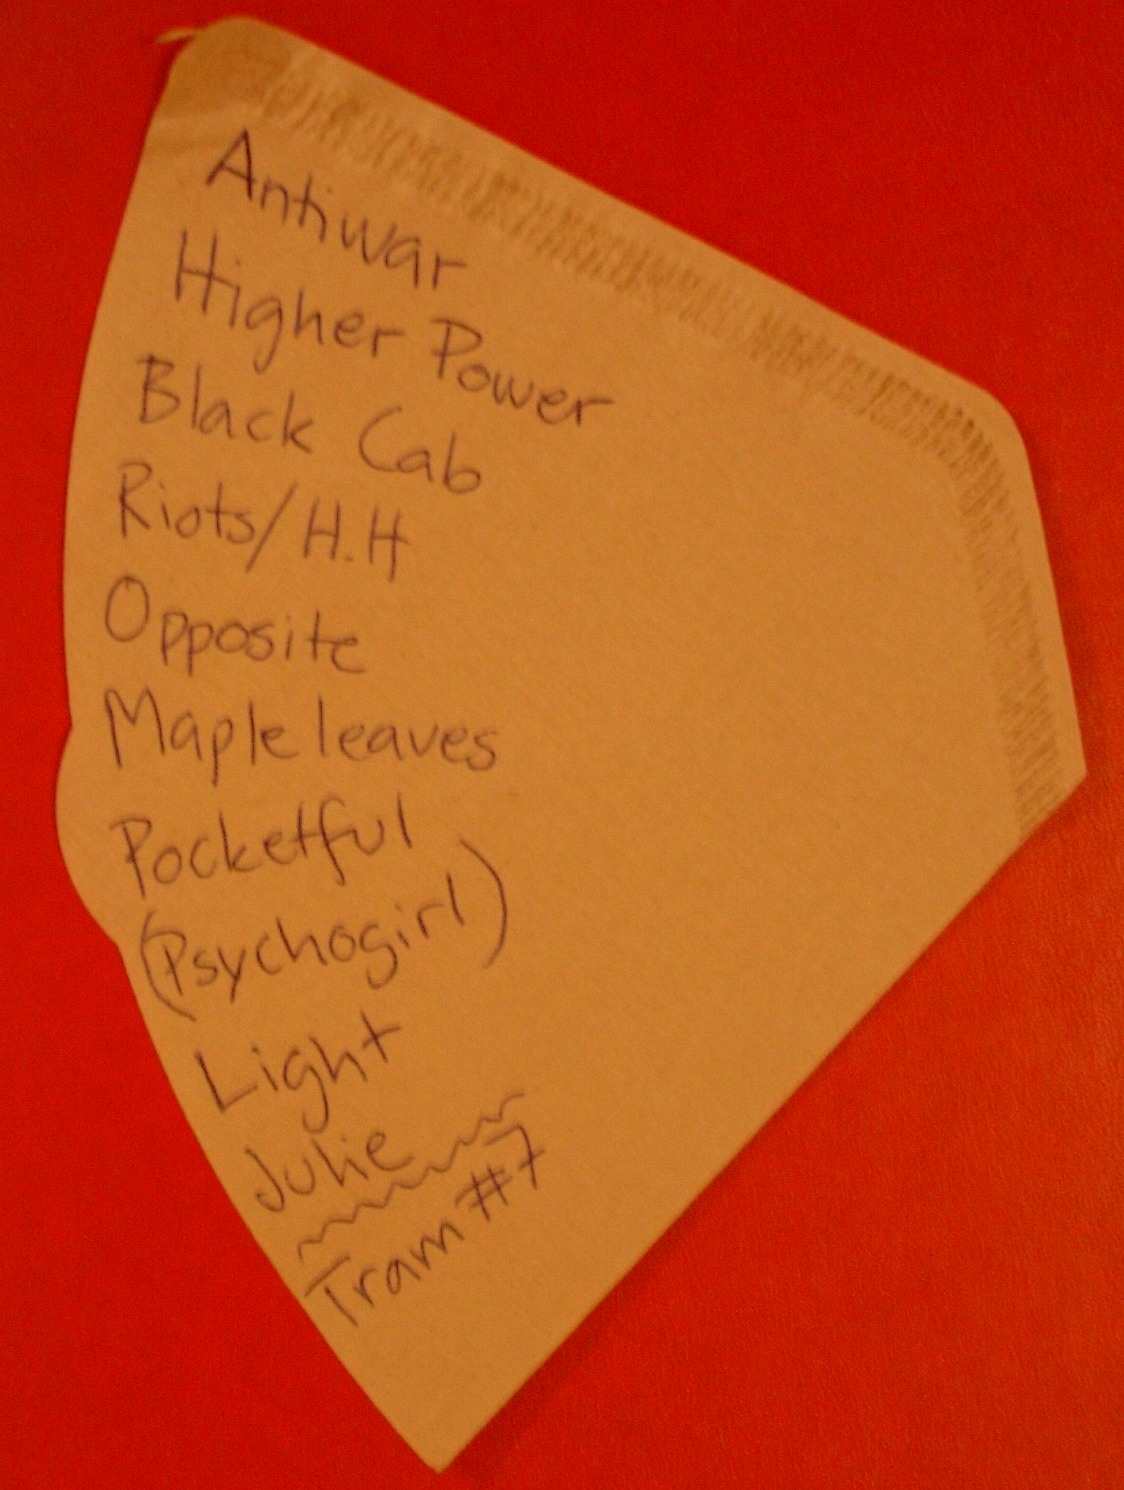 Antiwar
Higher Power
Black Cab
Riots/H.H
Opposite
Maple leaves
Pocketful
(Psychogirl)
Light
Julie
Tram #7